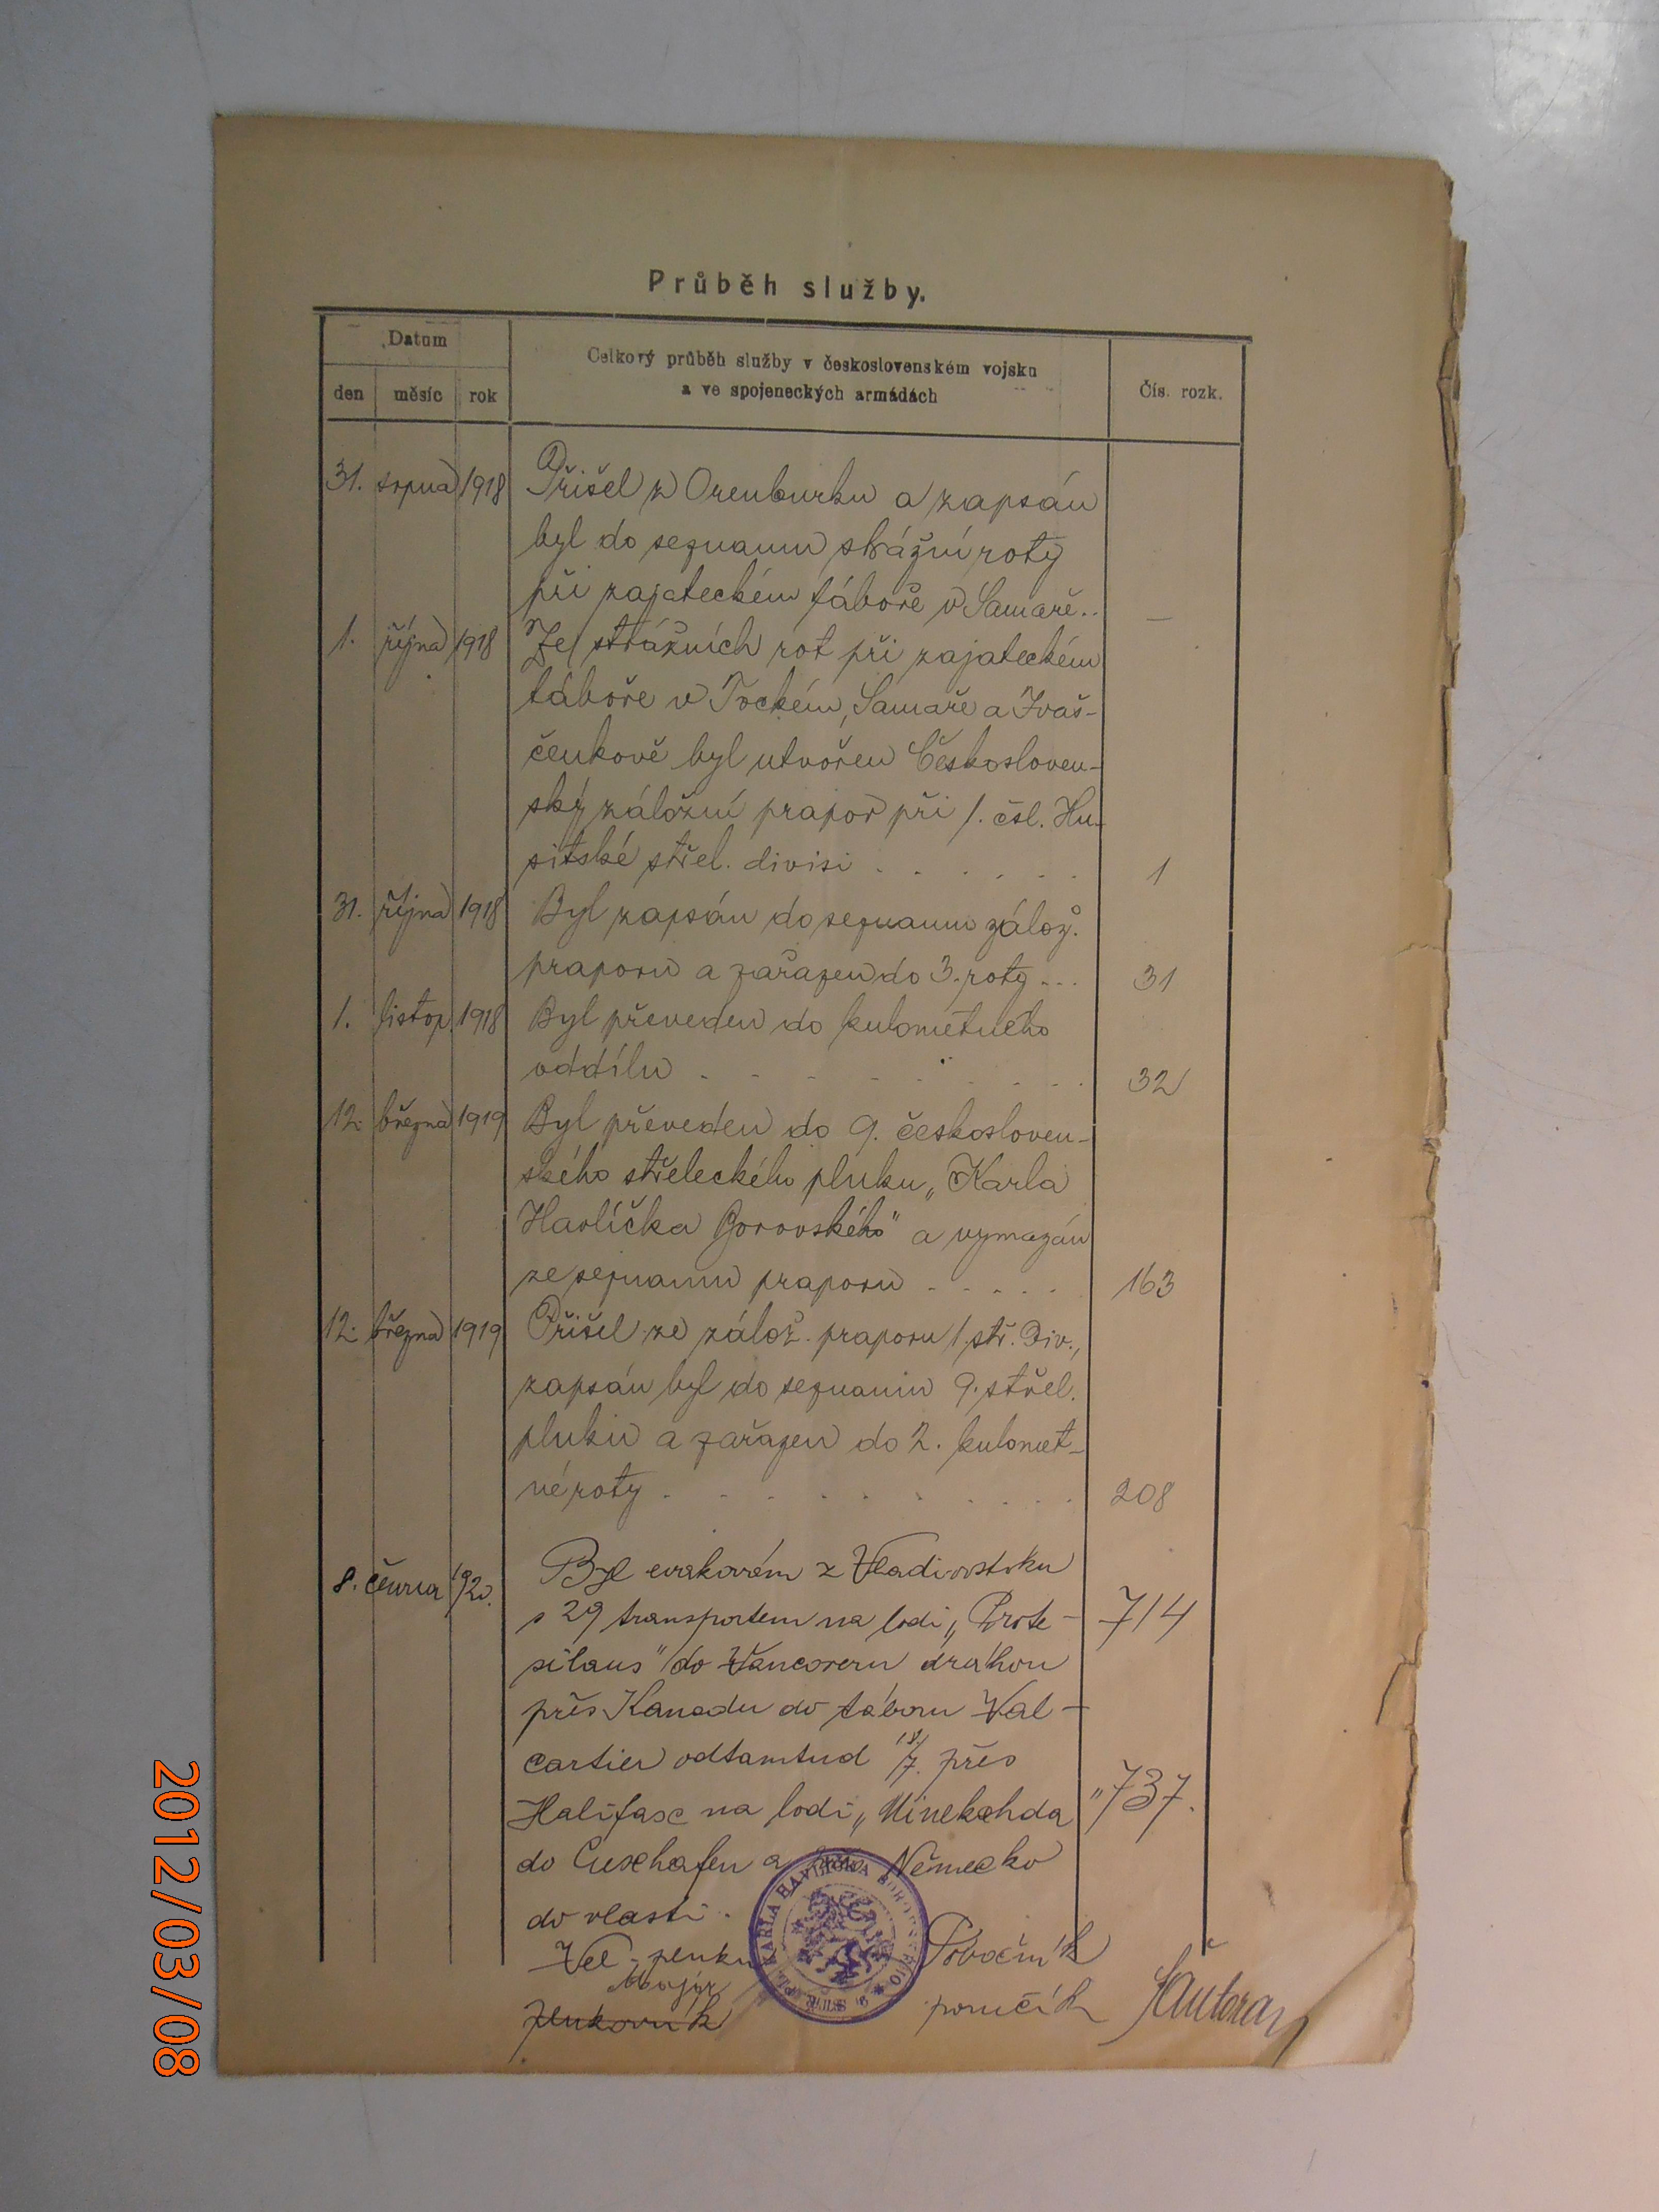 Průběh služby.
Datum
den měsíc rok
Celkový průběh služby v československém vojsku
a ve spojeneckých armádách
Čís. rozk.
31. srpna 1918 Přišel z Orenburku a zapsán
byl do seznamu strážní roty
při zajateckém táboře v Samaře.. —
1. října 1918 Ze strážních rot při zajateckém
táboře v Tockém, Samaře a Ivaš-
čenkově byl utvořen Českosloven-
ský záložní prapor při 1. čsl. Hu-
sitské střel. divisi . . . . . . 1
31. října 1918 Byl zapsán do seznamu zálož.
praporu a zařazen do 3. roty ... 31
1. listop. 1918 Byl převeden do kulometného
oddílu . . . . . . . . 32
12. března 1919 Byl převeden do 9. českosloven-
ského střeleckého pluku „Karla
Havlíčka Borovského" a vymazán
ze seznamu praporu . . . . . 163
12. března 1919 Přišel ze zálož. praporu 1. stř. Div.,
zapsán byl do seznamu 9. střel.
pluku a zařazen do 2. kulomet-
né roty . . . . . . . . . 208
8. června 1920. Byl evakován z Vladivostoku
s 29 transportem na lodi „Prote- 714
silaus" do Vancoveru drahou
přes Kanadu do táboru Val-
cartier odtamtud přes
Halifax na lodi „Minekahda „737.
do Cuxhafen a přes Německo
do vlasti.
Vel. pluku Pobočník
Major
plukovník poručík
STŘ. PL. KARLA HAVLÍČKA BOROVSKÉHO
2012/03/08